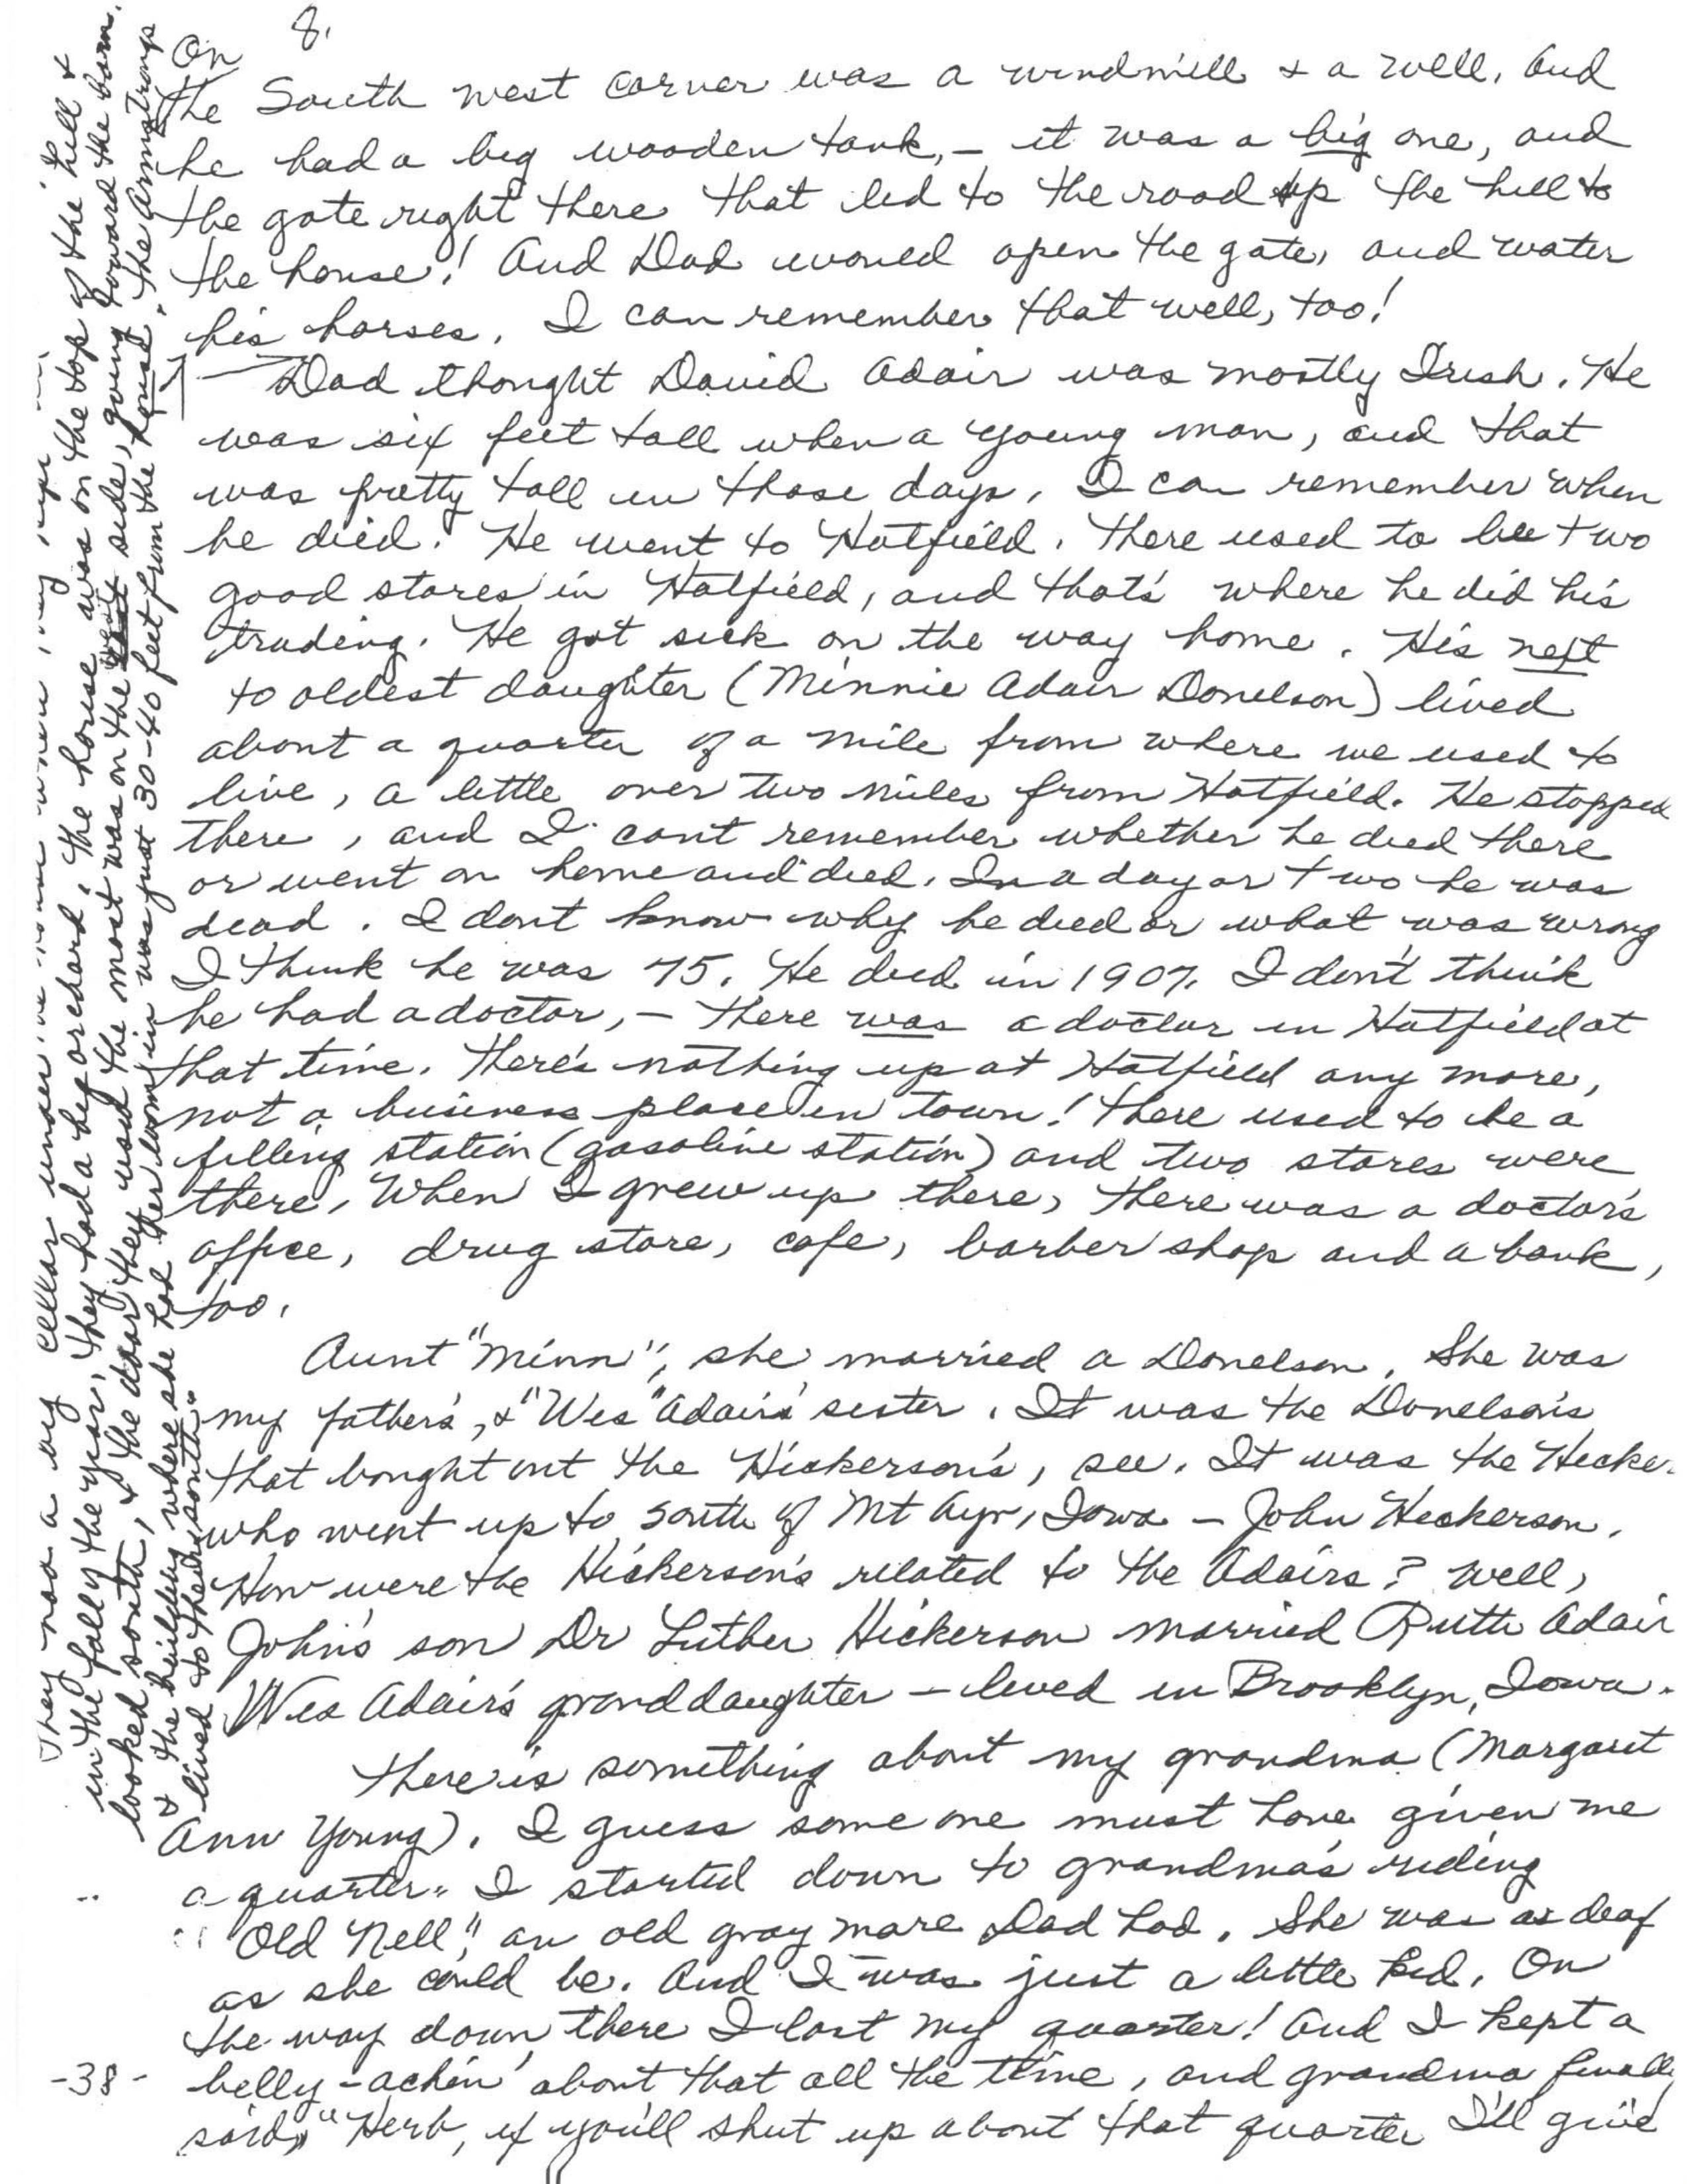 8.
On
the South west corner was a windmill & a well. And
he had a big wooden tank, – it was a big one, and
the gate right there that led to the road up the hill to
the house! And Dad would open the gate, and water
his horses. I can remember that well, too!
Dad thought David Adair was mostly Irish. He
was six feet tall when a young man, and that
was pretty tall in those days. I can remember when
he died. He went to Hatfield. There used to be two
good stores in Hatfield, and that's where he did his
trading. He got sick on the way home. His next
to oldest daughter (Minnie Adair Donelson) lived
about a quarter of a mile from where we used to
live, a little over two miles from Hatfield. He stopped
there, and I can't remember whether he died there
or went on home and died. In a day or two he was
dead. I don't know why he died or what was wrong
I think he was 75. He died in 1907. I don't think
he had a doctor, – there was a doctor in Hatfield at
that time. There's nothing up at Hatfield any more,
not a business place in town! There used to be a
filling station (gasoline station) and two stores were
there. When I grew up there, there was a doctor's
office, drug store, cafe, barber shop and a bank,
too.
Aunt "Minn", she married a Donelson. She was
my father's, & "Wes" Adair's sister. It was the Donelson's
that bought out the Hickerson's, see. It was the Hicker
who went up to south of Mt Ayr, Iowa – John Hickerson.
How were the Hickerson's related to the Adairs? Well,
John's son Dr Luther Hickerson married Ruth Adair
Wes Adair's granddaughter – lived in Brooklyn, Iowa.
There is something about my grandma (Margaret
Ann Young). I guess some one must have given me
a quarter. I started down to grandma's riding
"Old Nell", an old gray mare Dad had. She was as deaf
as she could be. And I was just a little kid. On
the way down there I lost my quarter! And I kept a
belly-achin' about that all the time, and grandma finally
said, "Herb, if you'll shut up about that quarter I'll give
-38-
They had a big cellar under the house where they kept
in the fall of the year, they had a big orchard. The house was on the top of the hill &
looked south, & the door they used the most was on the west side, going toward the barn.
& the building where she had her loom in was just 30-40 feet from the house. The Armstrongs
lived to their south."